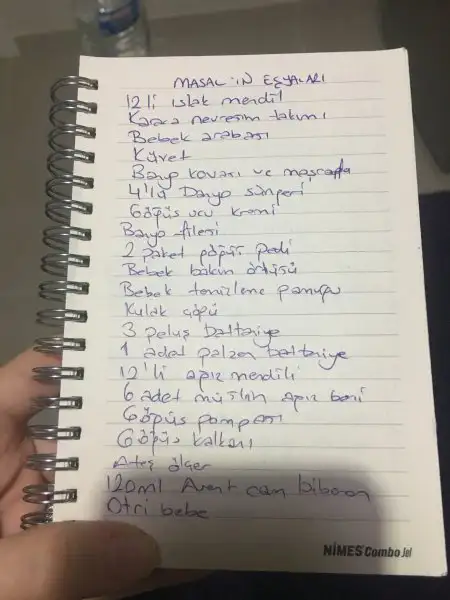 MASAL'IN EŞYALARI
12 li ıslak mendil
Karaca nevresim takımı
Bebek arabası
Küvet
Banyo kovası ve maşrapa
4'lü Banyo süngeri
Göğüs ucu kremi
Banyo filesi
2 paket göğüs pedi
Bebek bakım örtüsü
Bebek temizleme pamuğu
Kulak çöpü
3 peluş battaniye
1 adet battaniye
12'li ağız mendili
6 adet müslin ağız bezi
Göğüs pompası
Göğüs kalkanı
Ateş ölçer
120ml Avent cam biberon
Otri bebe
NİMES Combo Jel